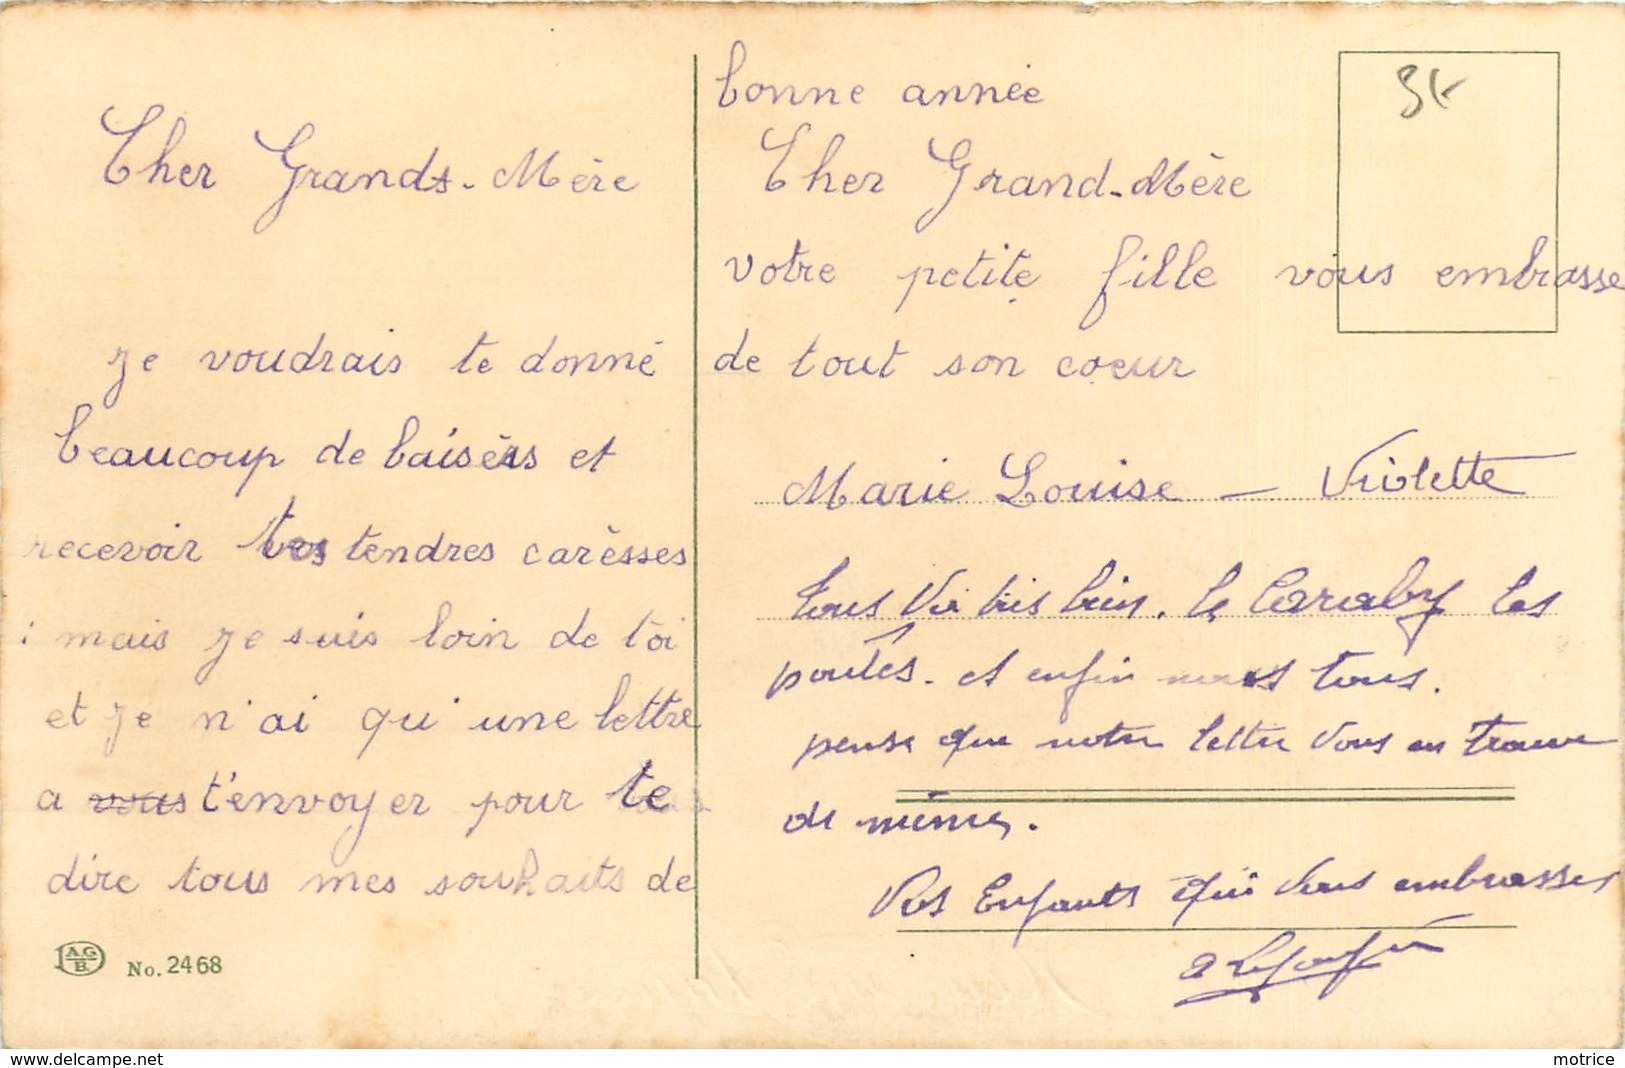 Cher Grands-Mère
je voudrais te donné
beaucoup de baisèrs et
recevoir tes tendres carèsses
mais je suis loin de toi
et je n'ai qu'une lettre
a vous t'envoyer pour te
dire tous mes souhaits de
A.G.
B.
No. 2468
bonne année
Cher Grand-Mère
votre petite fille vous embrasse
de tout son cœur
Marie Louise - Violette
tous Va très bien. le Caraby les
poules. et enfin nous tous.
pense que notre letter Vous en trouve
de mêmes.
Vos Enfants qui Vous embrasses
delcampe.net
motrice